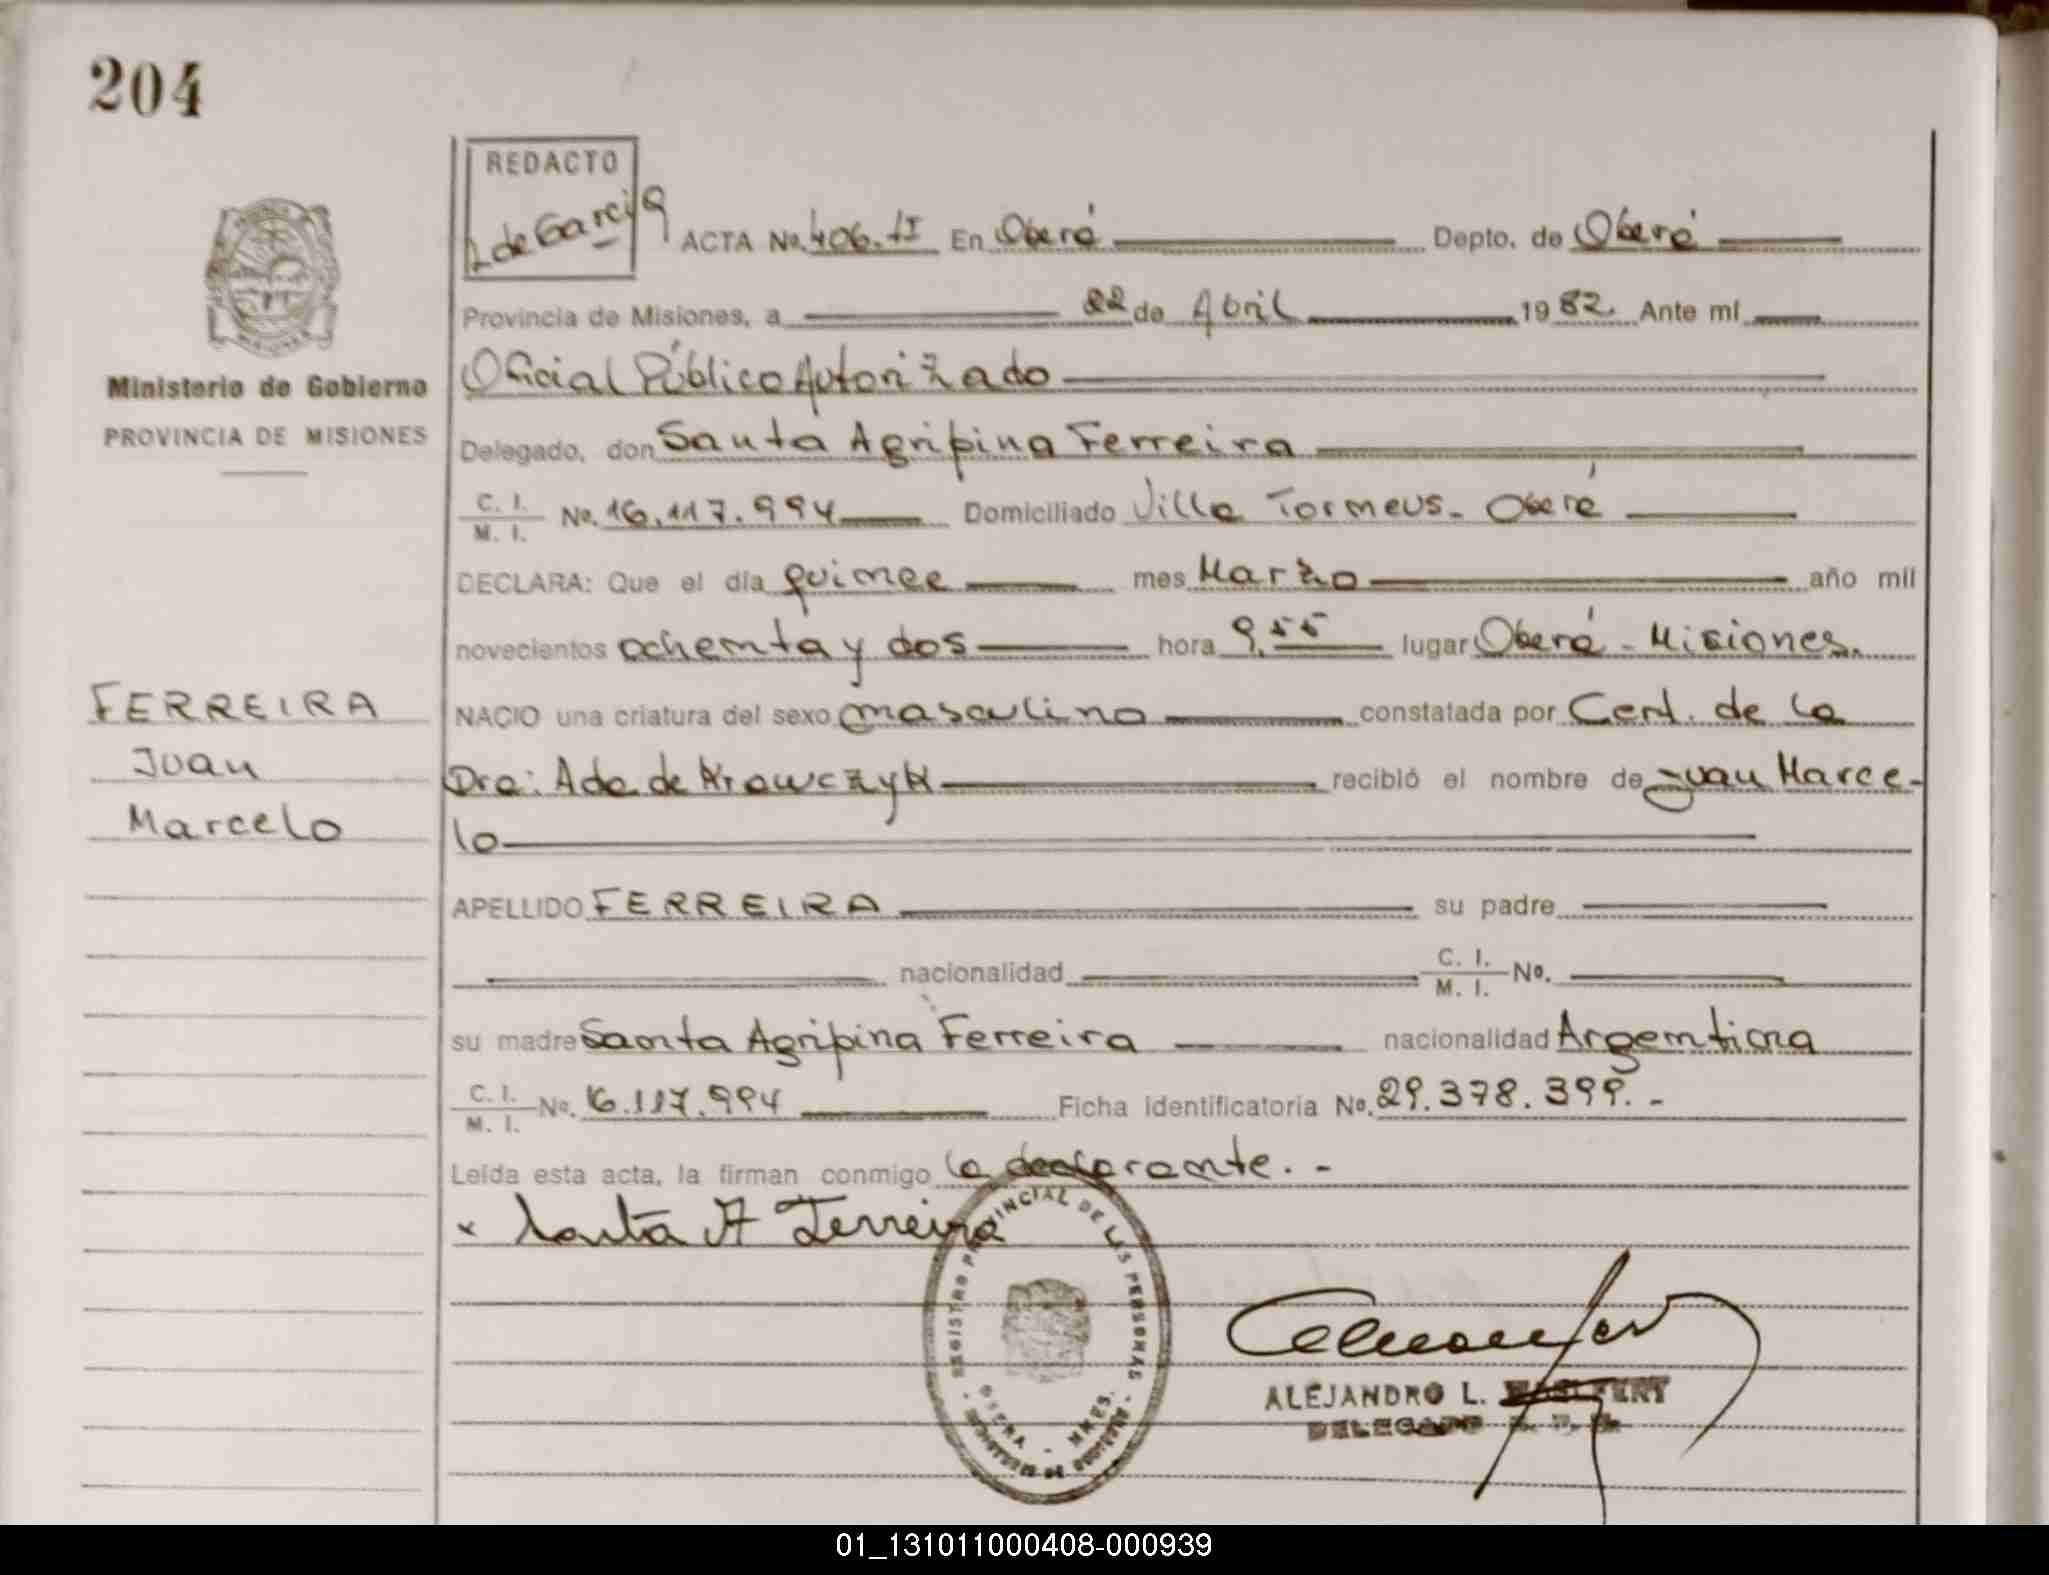 204
REDACTO
L de Garcia
ACTA No. 406. tI En Oberá Depto. de Oberá
Provincia de Misiones, a 22 de Abril 1982. Ante mí
Oficial Público Autorizado
Ministerio de Gobierno
PROVINCIA DE MISIONES
Delegado, don Santa Agripina Ferreira
C. I. / M. I. No. 16.117.994 Domiciliado Villa Tormeus - Oberá
DECLARA: Que el día quince mes Marzo año mil
novecientos ochenta y dos hora 9,55 lugar Oberá - Misiones.
FERREIRA
Juan
Marcelo
NACIO una criatura del sexo masculino constatada por Cert. de la
Dra: Ada de Krawczyk recibió el nombre de Juan Marce-
lo
APELLIDO FERREIRA su padre
nacionalidad C. I. / M. I. No.
su madre Santa Agripina Ferreira nacionalidad Argentina
C. I. / M. I. No. 16.117.994 Ficha identificatoria No. 29.378.399.-
Leída esta acta, la firman conmigo la declarante.-
x Santa A Ferreira
REGISTRO PROVINCIAL DE LAS PERSONAS
OBERA - MNES.
MINISTERIO DE GOBIERNO
ALEJANDRO L.
DELEGADO
01_131011000408-000939